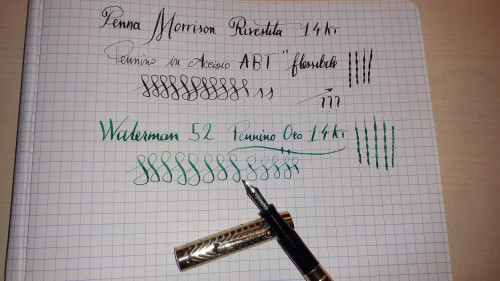 Penna Morrison Rivestita 14 Kt
Pennino in Acciaio ABT "flessibile
???
Waterman 52 Pennino Oro 14 Kt